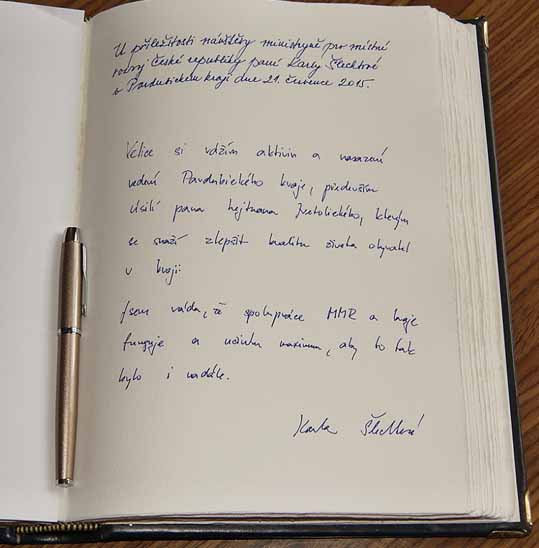 U příležitosti návštěvy ministryně pro místní
rozvoj České republiky paní Karly Šlechtové
v Pardubickém kraji dne 21. července 2015.
Velice si vážím aktivin a nasazení
vedení Pardubického kraje, především
úsilí pana hejtmana Netolického, kterým
se snaží zlepšit kvalitu života obyvatel
v kraji.
Jsem ráda, že spolupráce MMR a kraje
funguje a učiním maximum, aby to tak
bylo i nadále.
Karla Šlechtová